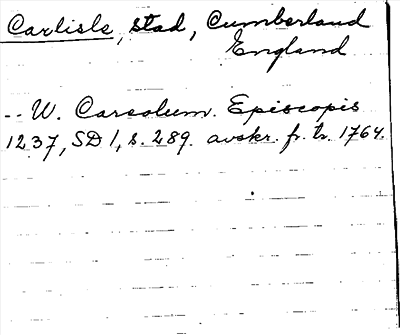 Carlisle, stad, Cumberland
England
-- W. Carsolum. Episcopis
1237, SD 1, s. 289. avskr. fr. tr. 1764.